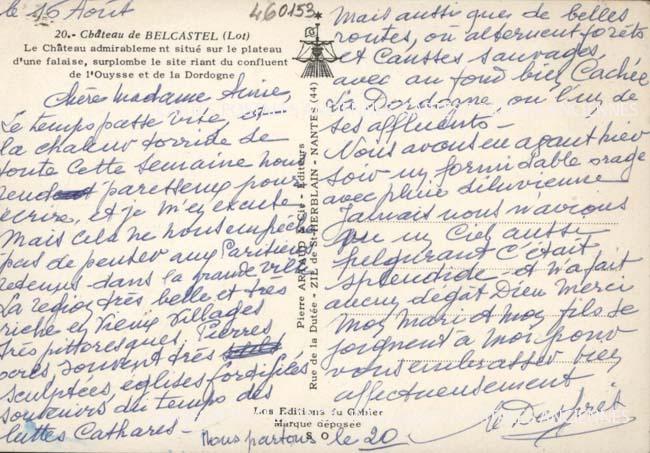 le 16 Août
460153
20. - Château de BELCASTEL (Lot)
Le Château admirablement situé sur le plateau
d'une falaise, surplombe le site riant du confluent
de l'Ouysse et de la Dordogne
Chère Madame
Le temps passe vite, et
la chaleur torride de
toute cette semaine nous
rend paresseux pour
écrire, et je m'en excuse
Mais cela ne nous empêche
pas de penser aux Parisiens
retenus dans la grande ville
La région très belle et très
riche en Vieux Villages
très pittoresques, Pierres
ocres, souvent très
sculptées, églises fortifiées
souvenirs du temps des
luttes Cathares -
Nous partons le 20
Pierre ARTAUD & Cie - Editeurs
Rue de la Dutée - ZIL de St-HERBLAIN - NANTES (44)
Les Editions du Gabier
Marque déposée
S O
Mais aussi que de belles
routes, où alternent forêts
et Causses sauvages,
avec au fond bien Cachée
la Dordogne ou l'un de
ses affluents -
Nous avons eu avant hier
soir un formidable orage
avec pluie diluvienne
Jamais nous n'avions
vu un Ciel aussi
fulgurant C'était
splendide - et n'a fait
aucun dégât Dieu Merci
Mon Mari et Mon fils se
joignent à Moi pour
vous embrasser bien
affectueusement